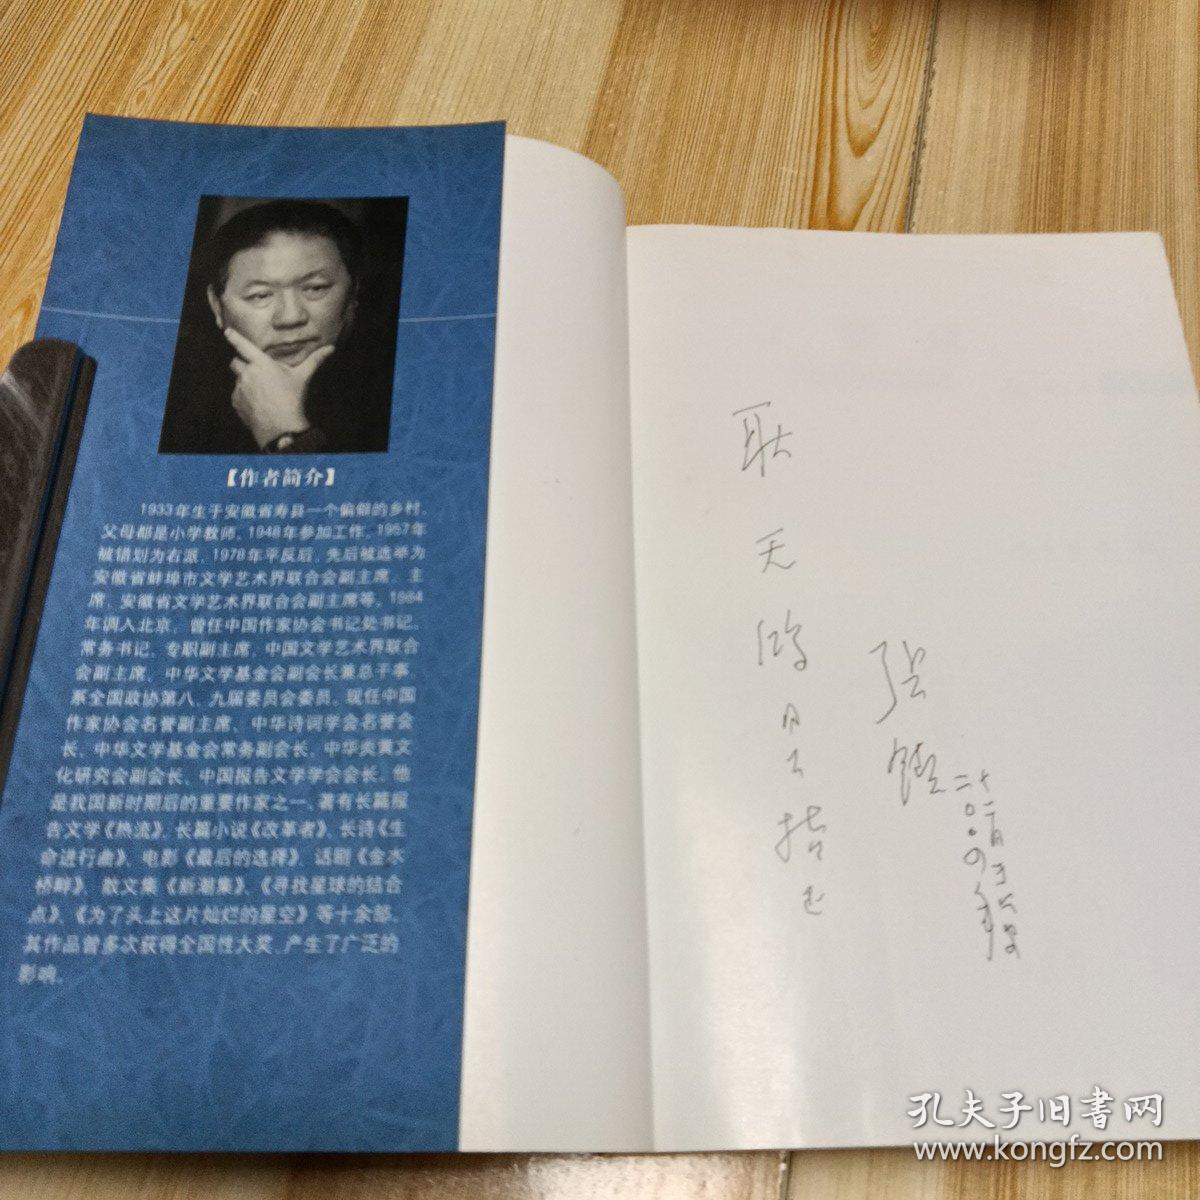 【作者简介】
1933年生于安徽省寿县一个偏僻的乡村,
父母都是小学教师。1948年参加工作,1957年
被错划为右派,1978年平反后,先后被选举为
安徽省蚌埠市文学艺术界联合会副主席、主
席,安徽省文学艺术界联合会副主席等。1984
年调入北京,曾任中国作家协会书记处书记、
常务书记、专职副主席,中国文学艺术界联合
会副主席,中华文学基金会副会长兼总干事,
系全国政协第八、九届委员会委员。现任中国
作家协会名誉副主席、中华诗词学会名誉会
长、中华文学基金会常务副会长、中华炎黄文
化研究会副会长、中国报告文学学会会长。他
是我国新时期后的重要作家之一,著有长篇报
告文学《热流》、长篇小说《改革者》、长诗《生
命进行曲》、电影《最后的选择》、话剧《金水
桥畔》、散文集《新潮集》、《寻找星球的结合
点》、《为了头上这片灿烂的星空》等十余部。
其作品曾多次获得全国性大奖,产生了广泛的
影响。
耿天鸿
指正
张锲
二〇〇〇年
十二月于北
孔夫子旧書网
www.kongfz.com